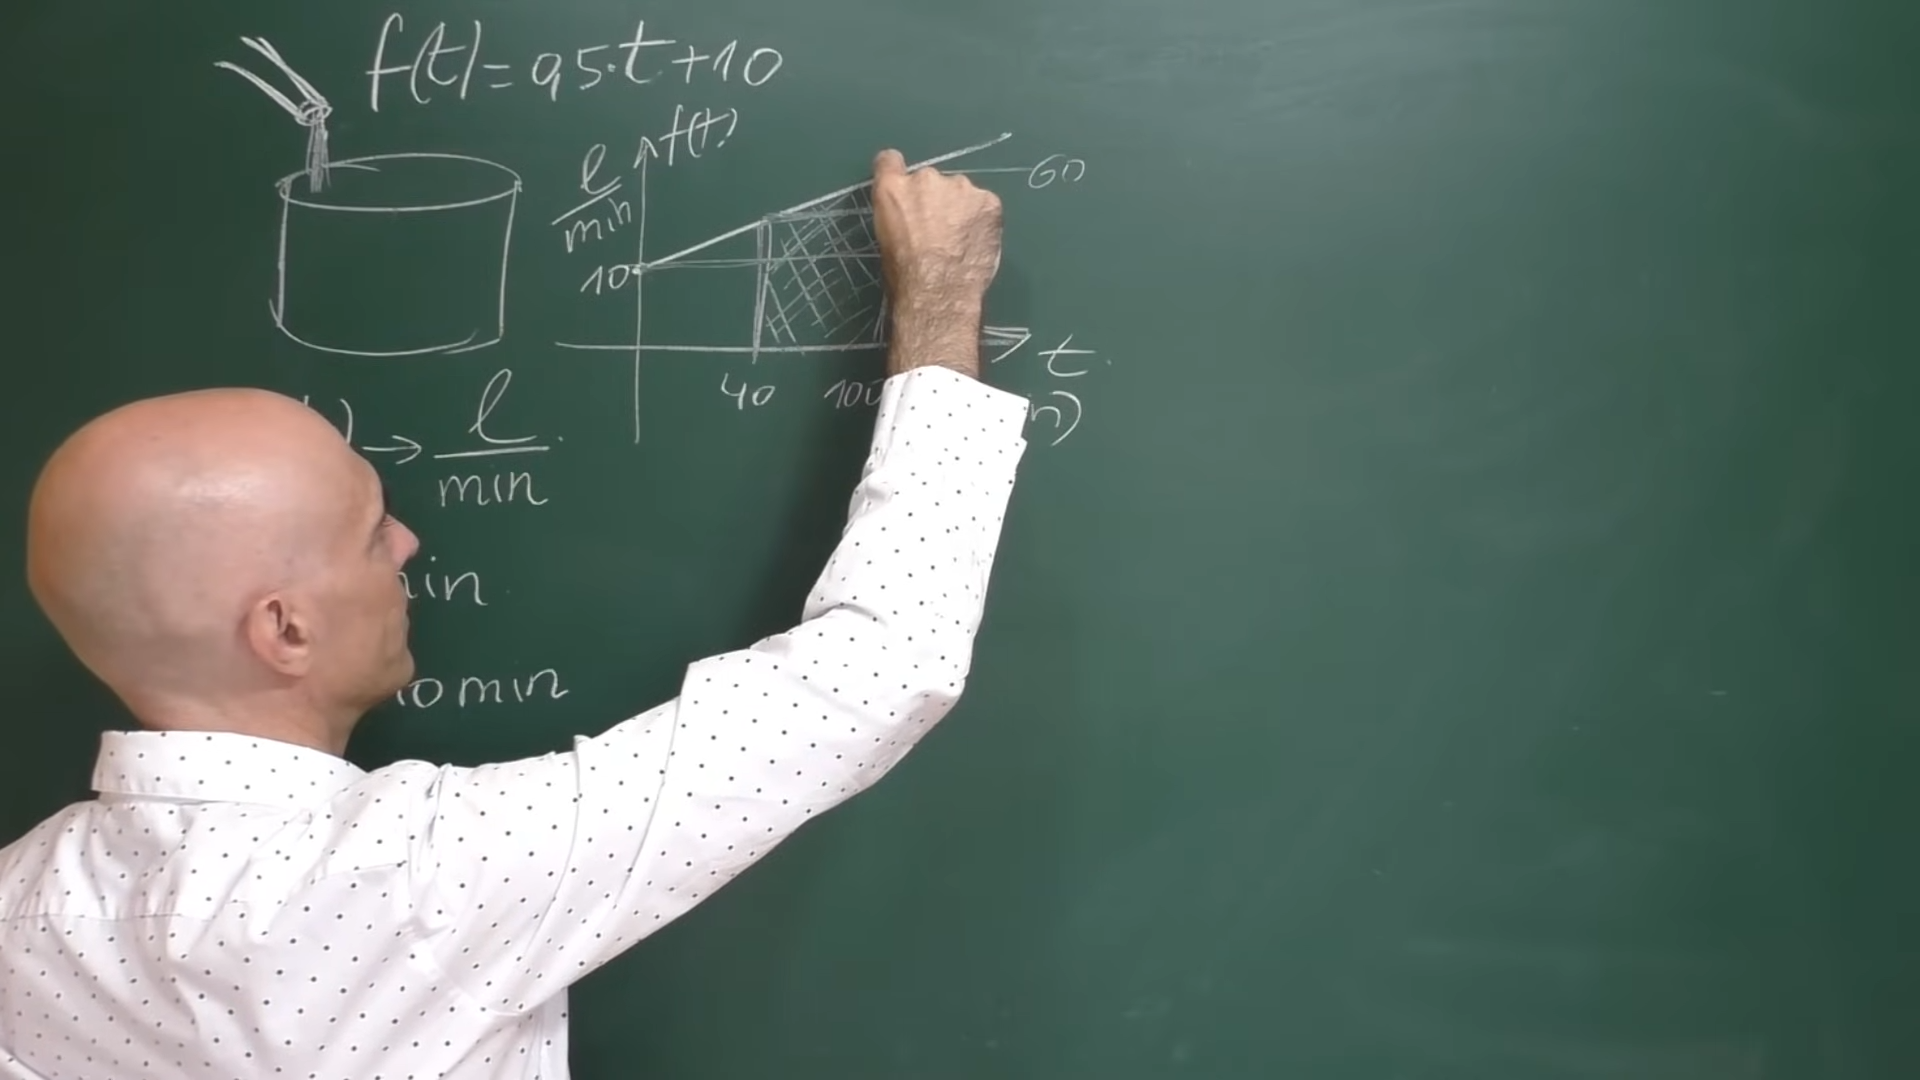 f(t)=0,5·t+10
f(t)
l/min
60
10
t
40 100
n)
) → l/min
in
10 min